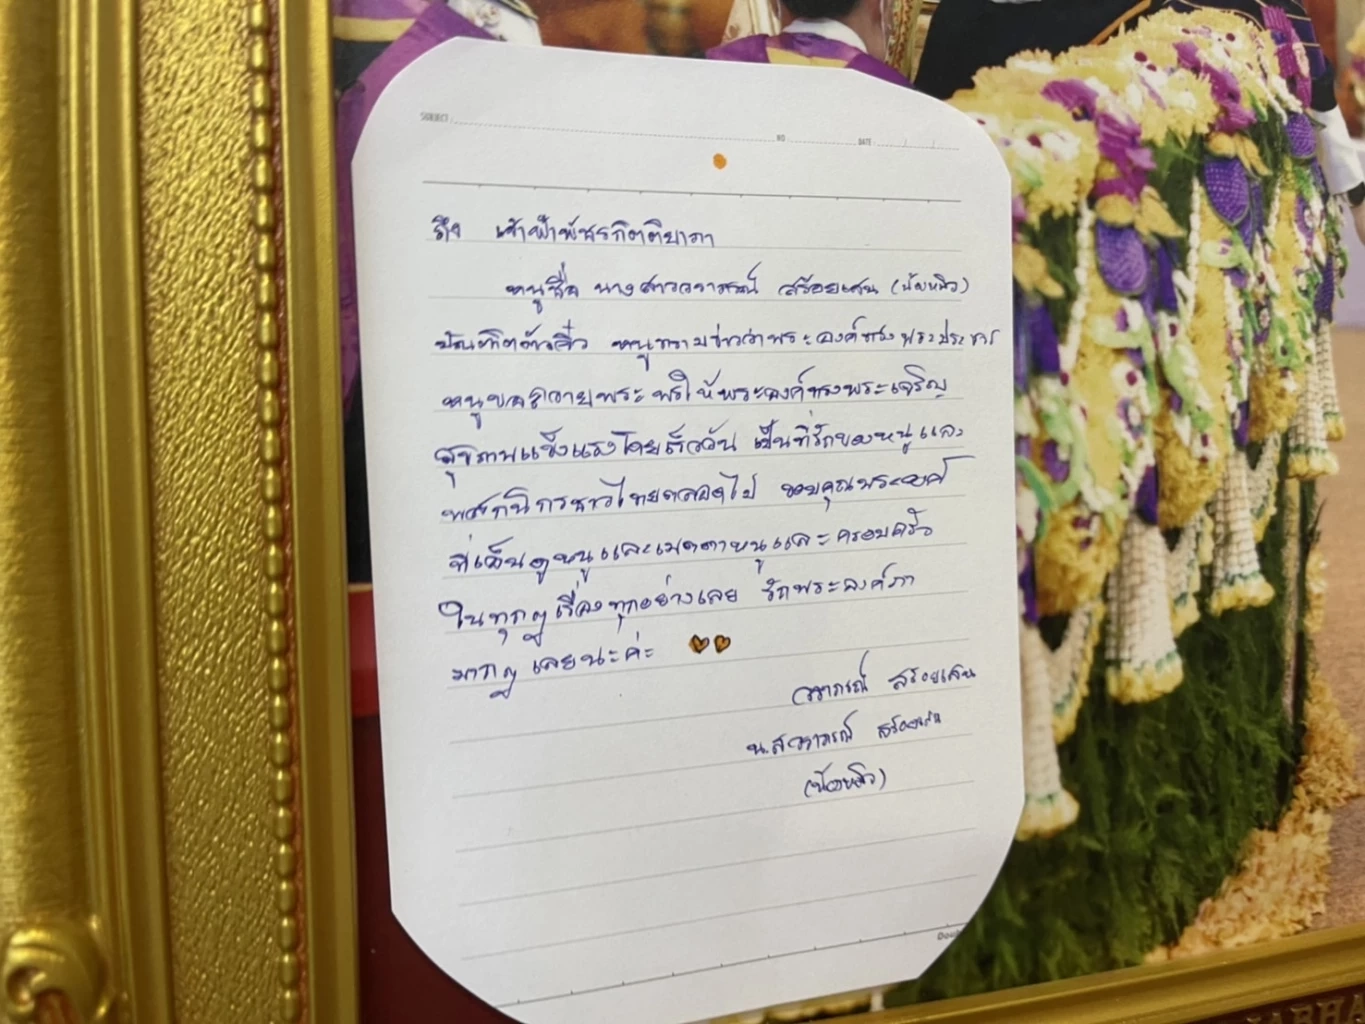 SUBJECT :
NO
DATE : / /
ถึง เจ้าฟ้าพัชรกิตติยาภา
หนูชื่อ นางสาววราภรณ์ สร้อยเสน (น้องหมิว)
บัณฑิตตัวจิ๋ว หนูทราบข่าวว่าพระองค์ทรงพระประชวร
หนูขอถวายพระพรให้พระองค์ทรงพระเจริญ
สุขภาพแข็งแรงโดยเร็ววัน เป็นที่รักของหนูและ
พสกนิกรชาวไทยตลอดไป ขอบคุณพระองค์
ที่เอ็นดูหนูและเมตตาหนูและครอบครัว
ในทุกๆเรื่องทุกอย่างเลย รักพระองค์ภา
มากๆ เลยนะค่ะ
วราภรณ์ สร้อยเสน
น.ส วราภรณ์ สร้อยเสน
(น้องหมิว)